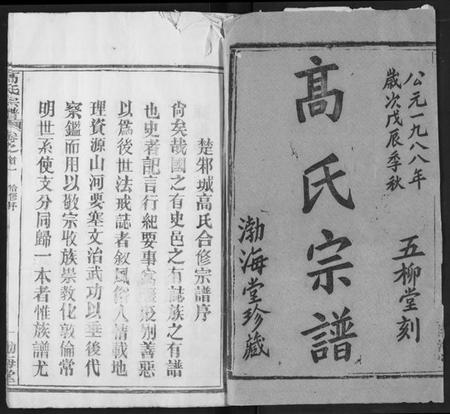 公元一九八八年
歲次戊辰季秋
高氏宗譜
五柳堂刻
渤海堂珍藏
楚邾城高氏合修宗譜序
尚矣哉國之有史邑之有誌族之有譜
也史者記言行紀要事寓褒貶別善惡
以為後世法戒誌者叙風俗人情載地
理資源山河要塞文治武功以垂後代
察鑑而用以敬宗收族崇教化敦倫常
明世系使文分同歸一本者惟族譜尤
高氏宗譜
卷之首一